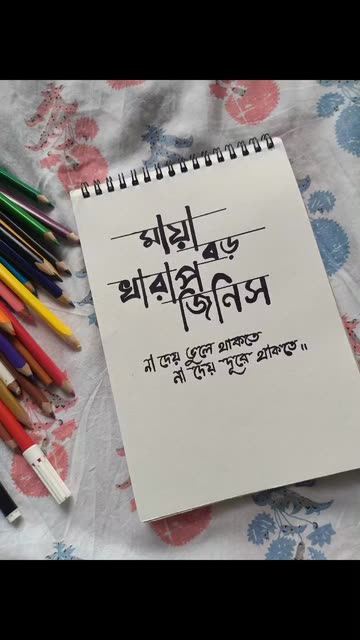 মায়া
বড়
খারাপ
জিনিস
না দেয় ভুলে থাকতে
না দেয় দূরে থাকতে॥